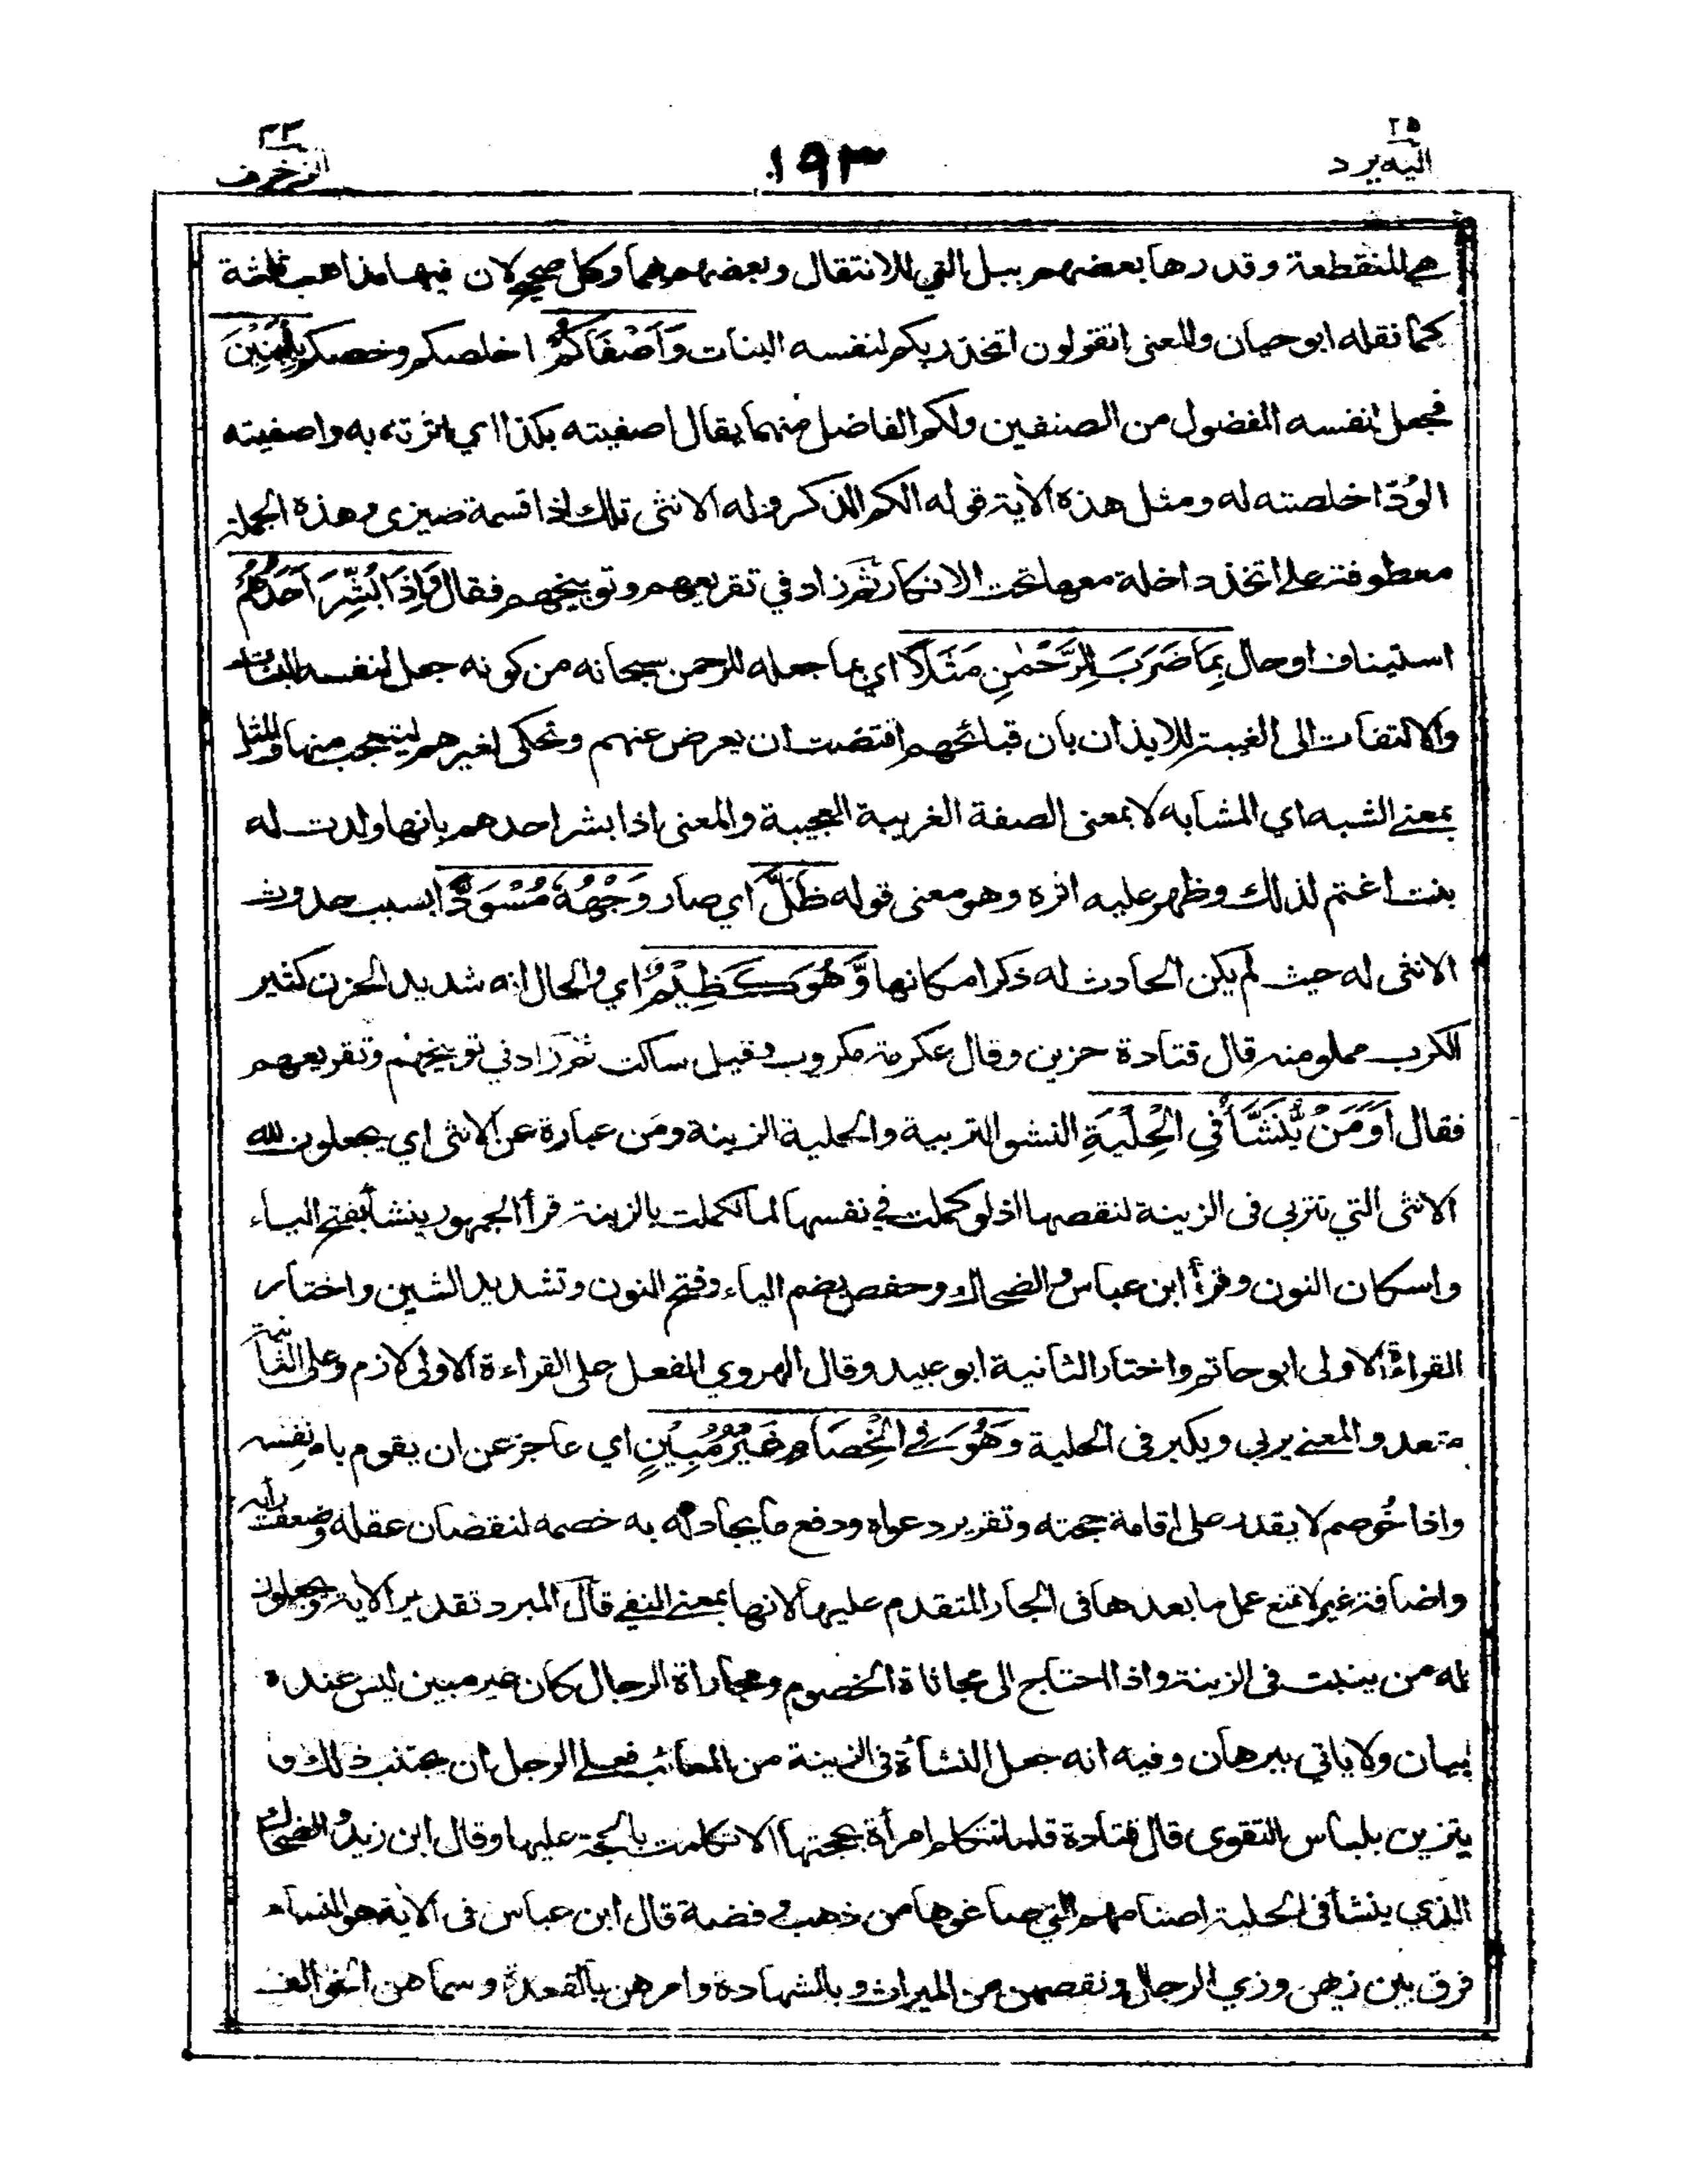 ٢٥
اليه يرد
١٩٣
٤٣
الزخرف
هي المنقطعة وقدرها بعضهم ببل التي للانتقال وبعضهم بهما وكل صحيح لان فيها مذاهب ثلثة
كما نقله ابو حيان والمعنى اتقولون اتخذ ربكم لنفسه البنات وَأَصْفَاكُمْ اخلصكم وخصكم بِالْبَنِيْنَ
فجعل لنفسه المفضول من الصنفين ولكم الفاضل منهما يقال اصفيته بكذا اي اثرته به واصفيته
الوُدّ اخلصته له ومثل هذه الأية قوله الكم الذكر وله الانثى تلك اذا قسمة ضيزى وهذه الجملة
معطوفة على اتخذ داخلة معها تحت الانكار ثم زاد في تقريعهم وتوبيخهم فقال وَإِذَا بُشِّرَ أَحَدُهُمْ
استيناف او حال بِمَا ضَرَبَ لِلرَّحْمٰنِ مَثَلًا اي بما جعله للرحمن سبحانه من كونه جعل لنفسه البنات
والالتفات الى الغيبة للايذان بان قبائحهم اقتضت ان يعرض عنهم وتحكى لغيرهم ليتعجب منها والمثل
بمعنى الشبه اي المشابه لا بمعنى الصفة الغريبة العجيبة والمعنى اذا بشر احدهم بانها ولدت له
بنت اغتم لذلك وظهر عليه اثره وهو معنى قوله ظَلَّ اي صار وَجْهُهُ مُسْوَدًّا بسبب حدوث
الانثى له حيث لم يكن الحادث له ذكرا مكانها وَّهُوَ كَظِيْمٌ اي والحال انه شديد الحزن كثير
الكرب مملو منه قال قتادة حزين وقال عكرمة مكروب وقيل ساكت ثم زاد في توبيخهم وتقريعهم
فقال أَوَمَنْ يُّنَشَّأُ فِي الْحِلْيَةِ النشو التربية والحلية الزينة ومَن عبارة عن الانثى اي يجعلون لله
الانثى التي تتربى فى الزينة لنقصها اذ لو كملت في نفسها لما تكملت بالزينة قرأ الجمهور ينشأ بفتح الياء
واسكان النون وقرأ ابن عباس والضحاك وحفص بضم الياء وفتح النون وتشديد الشين واختار
القراءة الاولى ابو حاتم واختار الثانية ابو عبيد وقال الهروي الفعل على القراءة الاولى لازم وعلى الثانية
متعد والمعنى يربى ويكبر فى الحلية وَهُوَ فِي الْخِصَامِ غَيْرُ مُبِيْنٍ اي عاجز عن ان يقوم بامر نفسه
واذا خُوصم لا يقدر على اقامة حجته وتقرير دعواه ودفع ما يجادله به خصمه لنقصان عقله وضعف رأيه
واضافة غير لا تمنع عمل ما بعدها فى الجار المتقدم عليها لانها بمعنى النفي قال المبرد تقدير الأية ويجعلون
له من ينبت فى الزينة واذا احتاج الى مجاثاة الخصوم ومجاراة الرجال كان غير مبين ليس عنده
بيان ولا ياتي ببرهان وفيه انه جعل النشأة فى الزينة من المعائب فعلى الرجل ان يجتنب ذلك و
يتزين بلباس التقوى قال قتادة قلما تتكلم امرأة بحجتها الا تكلمت بالحجة عليها وقال ابن زيد والضحاك
الذي ينشأ فى الحلية اصنامهم التي صاغوها من ذهب و فضة قال ابن عباس فى الأية هو النساء
فرق بين زيهن وزي الرجال ونقصهن من الميراث وبالشهادة وامرهن بالقعدة وسماهن الخوالف